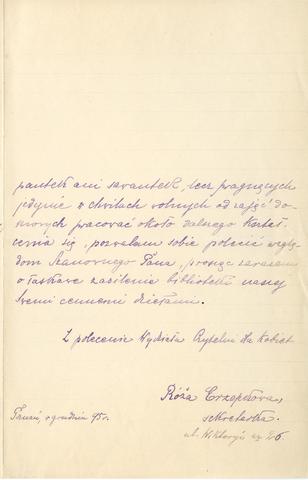 pantek ani sawantek, lecz pragnących
jedynie w chwilach wolnych od zajęć do-
mowych pracować około dalszego kształ-
cenia się, pozwalam sobie polecić wzglę-
dom Szanownego Pana, prosząc zarazem
o łaskawe zasilenie biblioteki naszej
Swemi cennemi dziełami.
Z polecenia Wydziału Czytelni dla Kobiet
Róża
sekretarka.
grudnia 95 r.